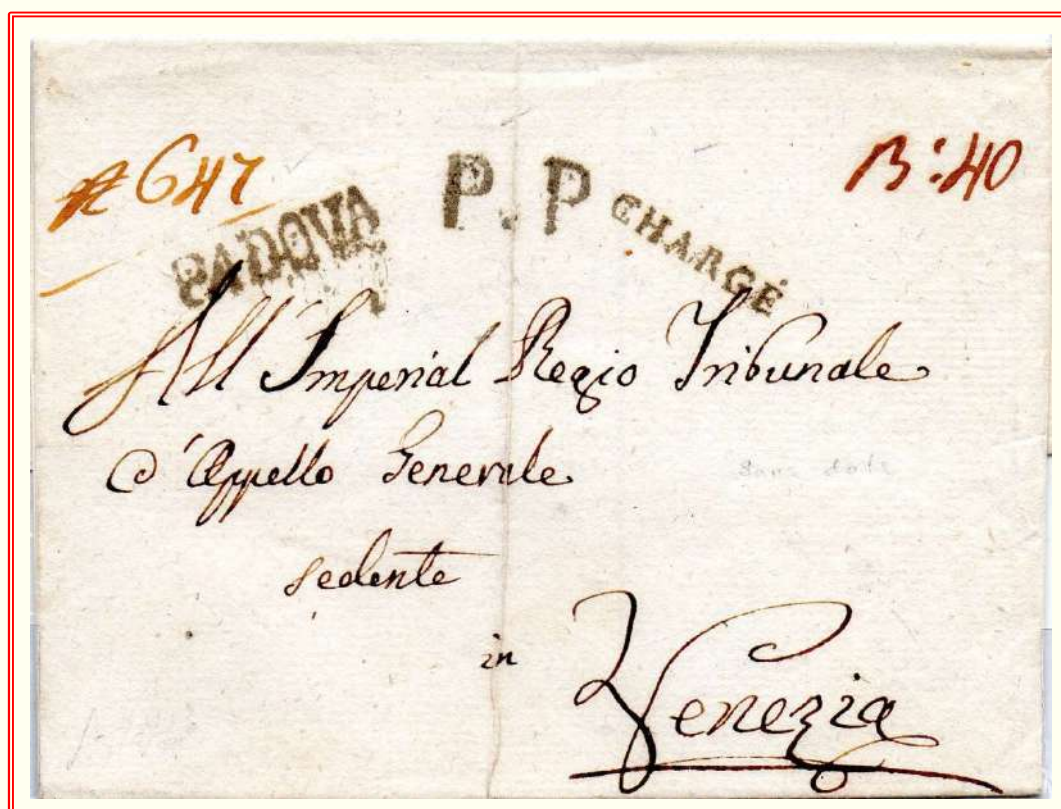 647
B:40
PADOVA
P. P
CHARGÉ
All' Imperial Regio Tribunale
d'Appello Generale
sedente
in
Venezia
Sans date